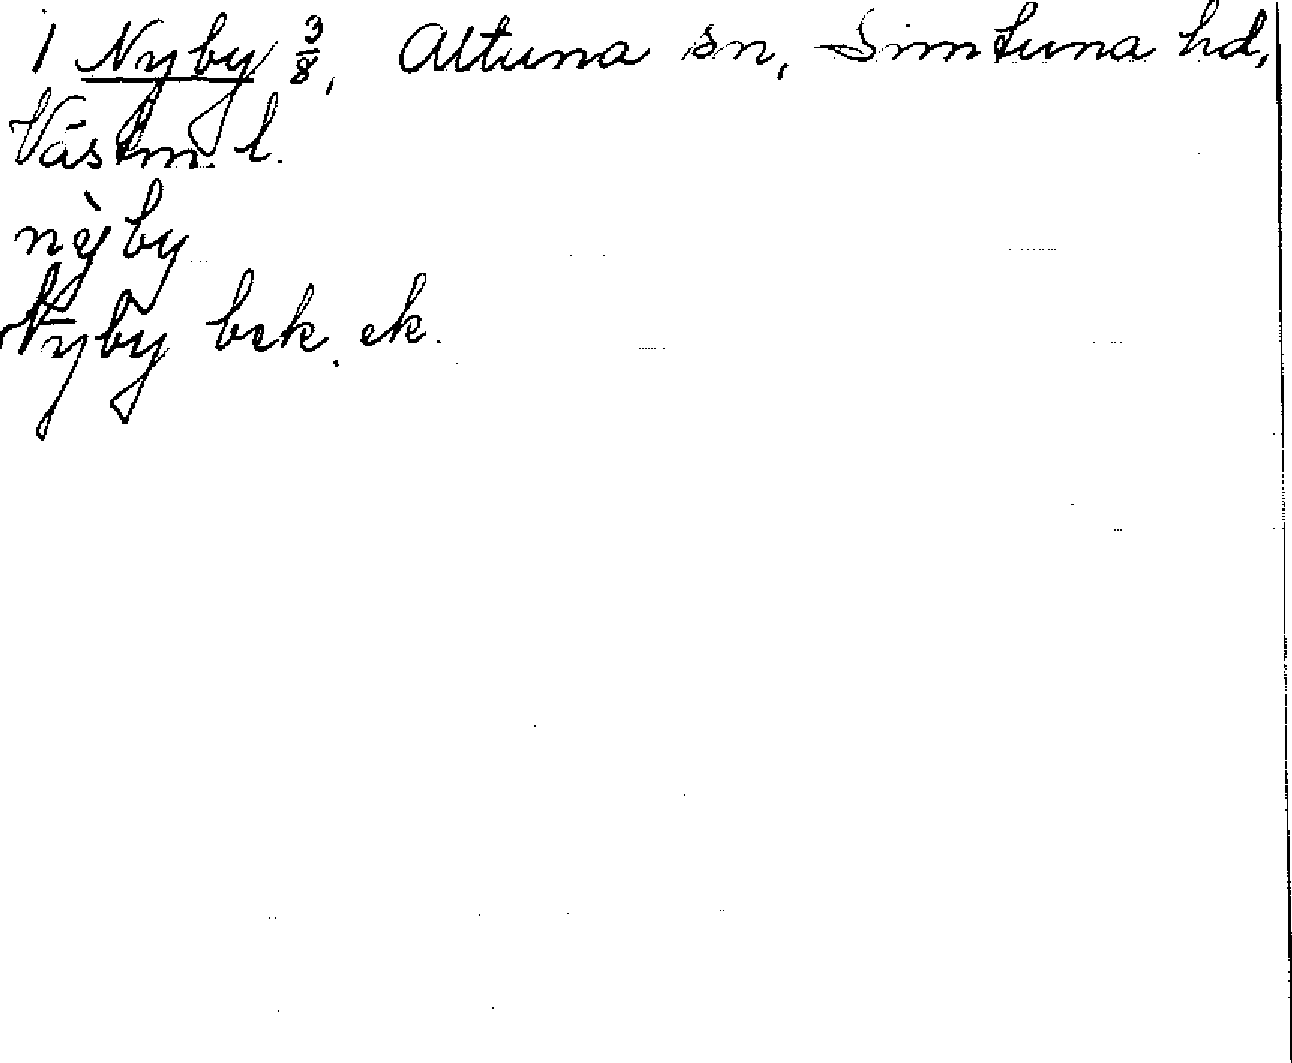 1 Nyby 3/8, Altuna sn, Simtuna hd,
Västm. l.
nỳby
Nyby bek. ek.